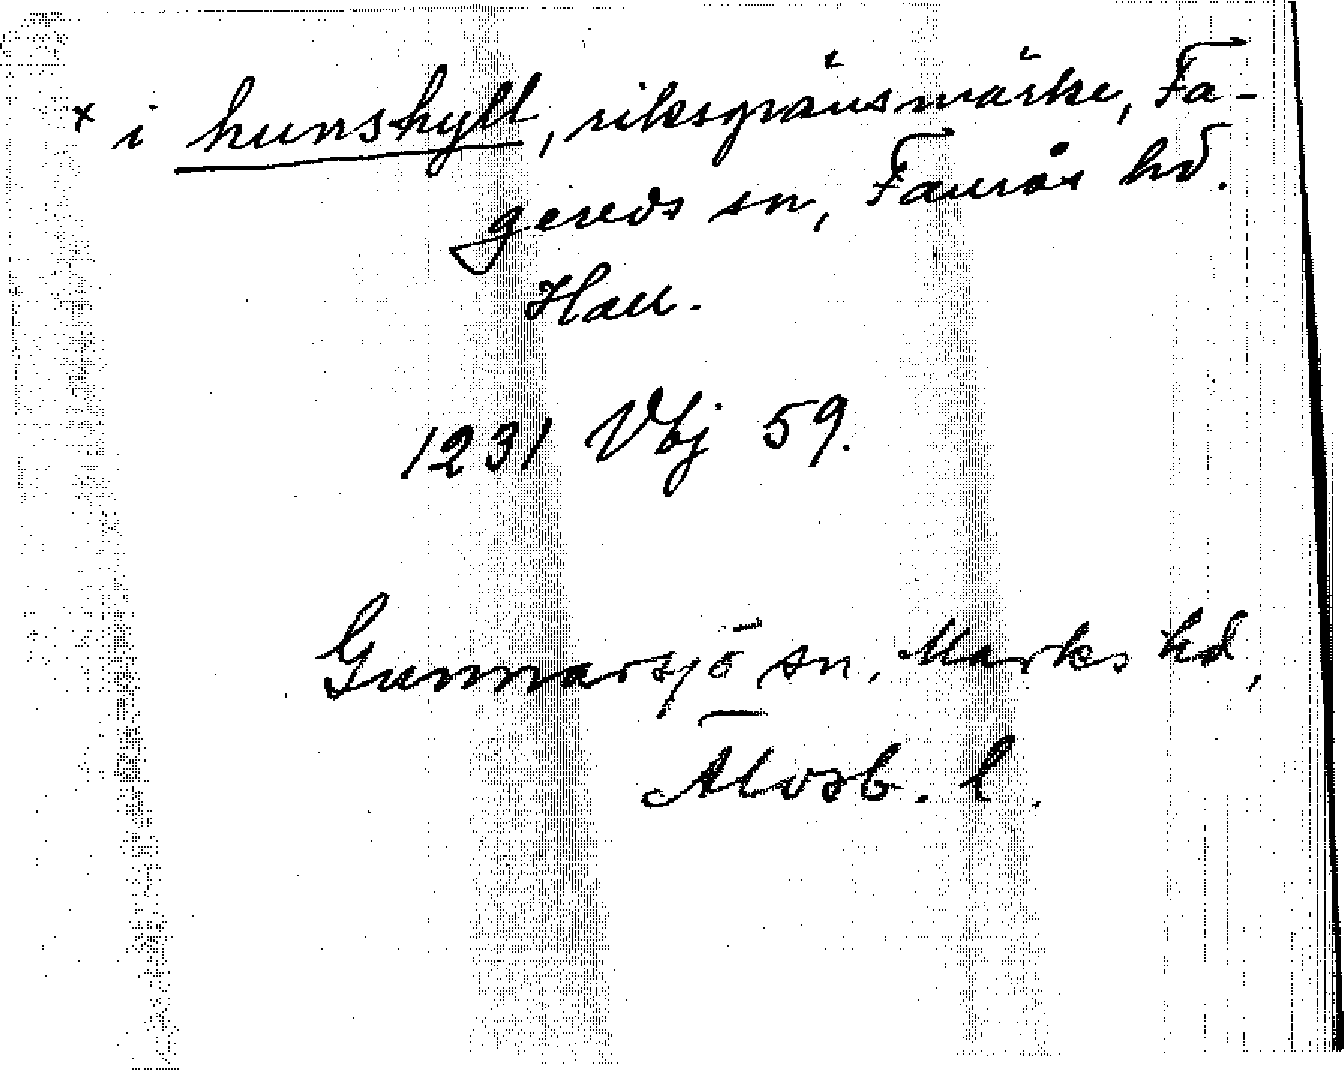 x i hunshyll, riksgränsmärke, Fa-
gereds sn, Faurås hd.
Hall.
1231 Vbj 59.
Gunnarsjö sn, Marks hd,
Älvsb. l.